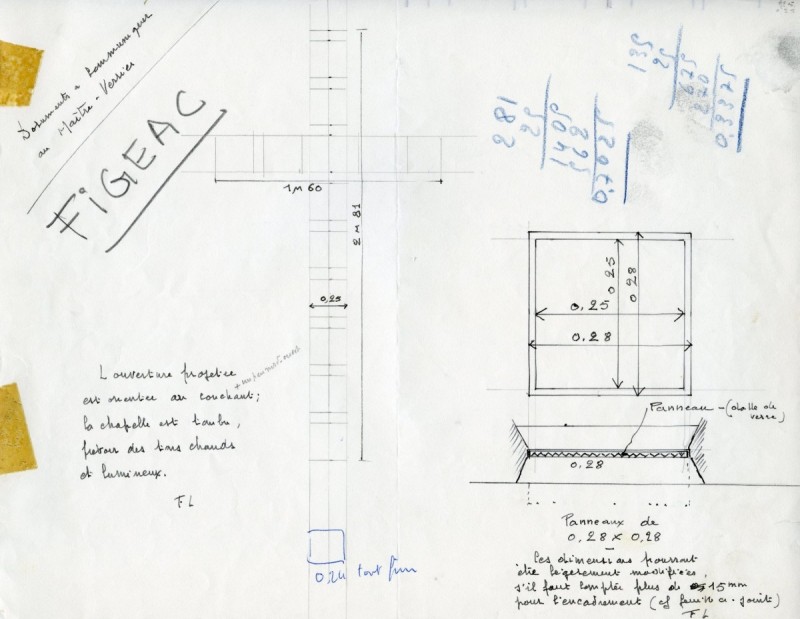 Documents a Communiquer
au Maître-Verrier
FiGEAC
1 M 60
2 M 81
0,25
L'ouverture projetée
est orientée au couchant;
la chapelle est
des tons chauds
et lumineux.
FL
0,24 tout fini
281
25
1405
562
0,7025
135
25
675
270
0,3375
0,25
0,28
0,25
0,28
Panneau - (dalle de
verre)
0,28
Panneaux de
0,28 x 0,28
Les dimensions pourront
être légèrement modifiées,
s'il faut compter plus de 15 mm
pour l'encadrement (cf feuille ci-joint)
FL